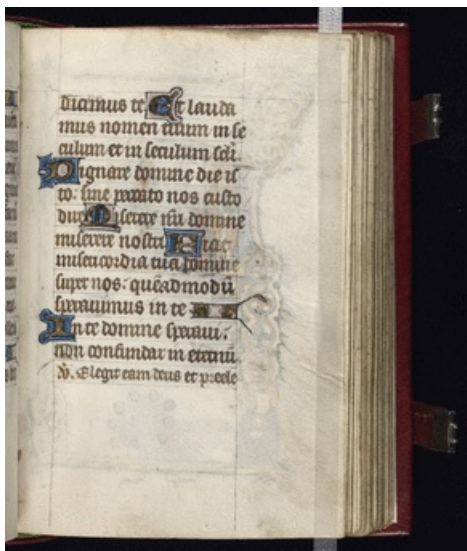 dicimus te Et lauda
mus nomen tuum in se
culum et in seculum sc̄li
Dignare domine die is
to: sine peccato nos custo
dire Miserere nr̄i domine
miserere nostri Fiat
misericordia tua domine
super nos: quēadmodū
sperauimus in te
In te domine speraui:
non confundar in eternū
V. Elegit eam deus et preele